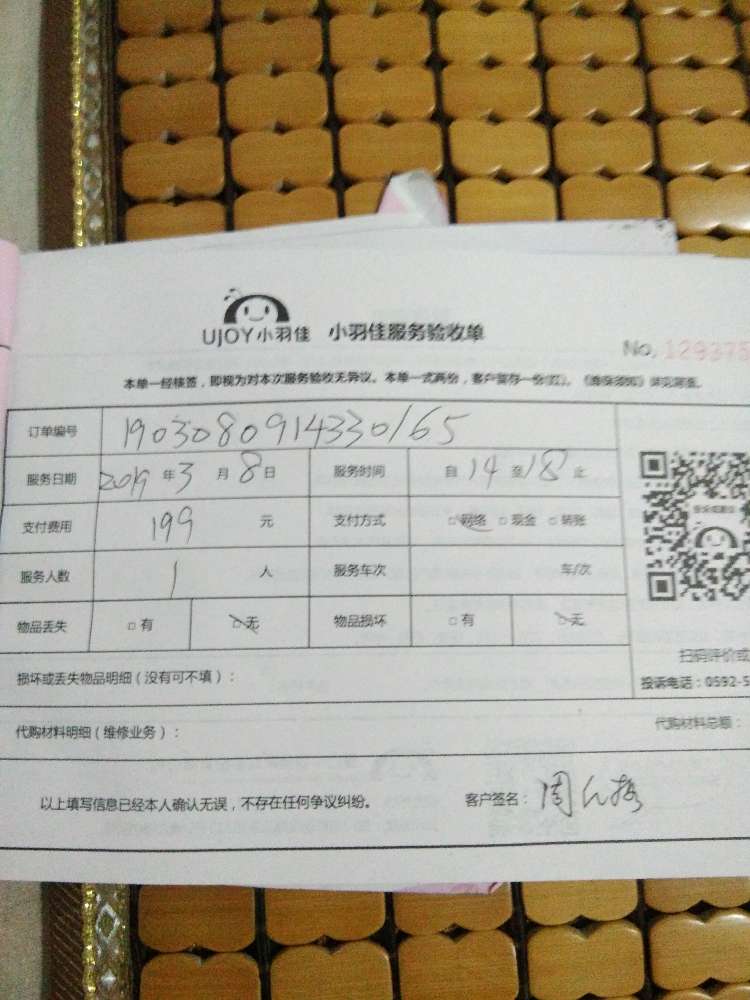 UJOY小羽佳 小羽佳服务验收单
No. 129375
本单一经核签,即视为对本次服务验收无异议。本单一式两份,客户留存一份(红)。
订单编号 1903080914330165
服务日期 2019 年 3 月 8 日 服务时间 自 14 至 18 止
支付费用 199 元 支付方式 □网络 □现金 □转账
服务人数 1 人 服务车次 车/次
物品丢失 □有 □无 物品损坏 □有 □无
扫码评价或
损坏或丢失物品明细(没有可不填):
投诉电话:0592-5
代购材料明细(维修业务): 代购材料总额:
以上填写信息已经本人确认无误,不存在任何争议纠纷。 客户签名:周